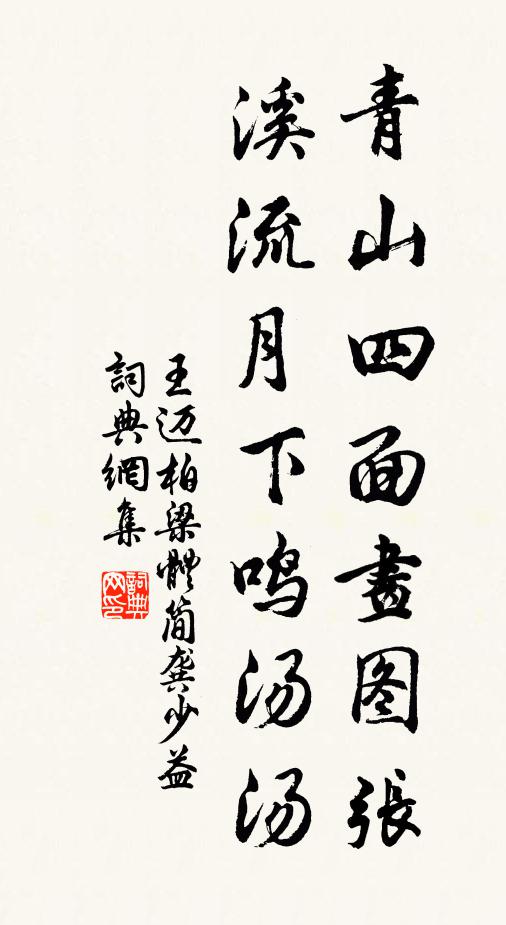 青山四面畫图張
溪流月下鸣汤汤
王迈柏梁體简龚少益
詞典網集
詞典网印